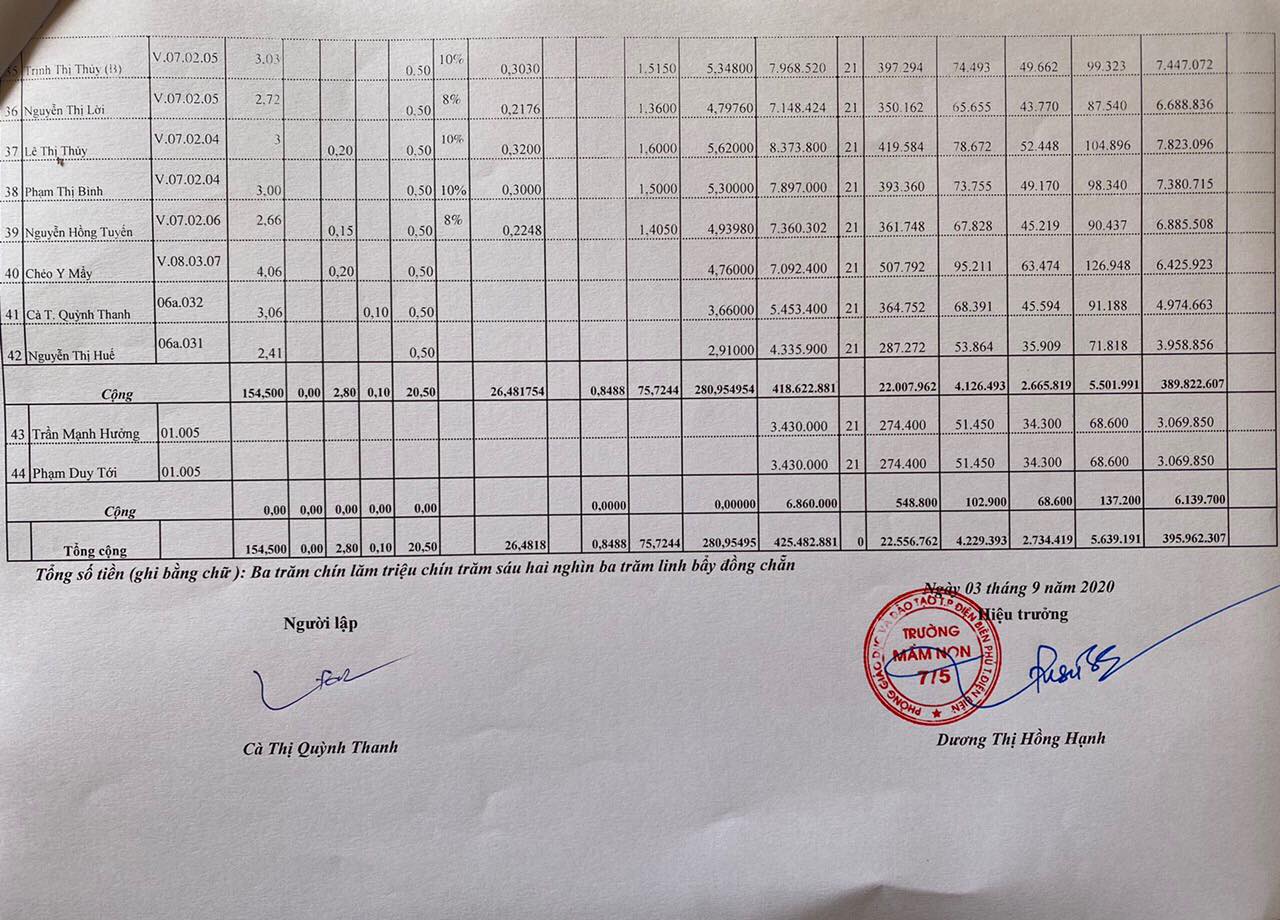 35 Trịnh Thị Thủy (B) V.07.02.05 3,03 0.50 10% 0,3030 1,5150 5,34800 7.968.520 21 397.294 74.493 49.662 99.323 7.447.072
36 Nguyễn Thị Lời V.07.02.05 2,72 0,50 8% 0,2176 1.3600 4,79760 7.148.424 21 350.162 65.655 43.770 87.540 6.688.836
37 Lê Thị Thủy V.07.02.04 3 0,20 0,50 10% 0,3200 1,6000 5,62000 8.373.800 21 419.584 78.672 52.448 104.896 7.823.096
38 Phạm Thị Bình V.07.02.04 3,00 0,50 10% 0,3000 1,5000 5,30000 7.897.000 21 393.360 73.755 49.170 98.340 7.380.715
39 Nguyễn Hồng Tuyến V.07.02.06 2,66 0,15 0,50 8% 0,2248 1,4050 4,93980 7.360.302 21 361.748 67.828 45.219 90.437 6.885.508
40 Chẻo Y Mẩy V.08.03.07 4,06 0,20 0,50 4,76000 7.092.400 21 507.792 95.211 63.474 126.948 6.425.923
41 Cà T. Quỳnh Thanh 06a.032 3,06 0,10 0,50 3,66000 5.453.400 21 364.752 68.391 45.594 91.188 4.974.663
42 Nguyễn Thị Huế 06a.031 2,41 0,50 2,91000 4.335.900 21 287.272 53.864 35.909 71.818 3.958.856
Cộng 154,500 0,00 2,80 0,10 20,50 26,481754 0,8488 75,7244 280,954954 418.622.881 22.007.962 4.126.493 2.665.819 5.501.991 389.822.607
43 Trần Mạnh Hưởng 01.005 3.430.000 21 274.400 51.450 34.300 68.600 3.069.850
44 Phạm Duy Tới 01.005 3.430.000 21 274.400 51.450 34.300 68.600 3.069.850
Cộng 0,00 0,00 0,00 0,00 0,00 0,0000 0,00000 6.860.000 548.800 102.900 68.600 137.200 6.139.700
Tổng cộng 154,500 0,00 2,80 0,10 20,50 26,4818 0,8488 75,7244 280,95495 425.482.881 0 22.556.762 4.229.393 2.734.419 5.639.191 395.962.307
Tổng số tiền (ghi bằng chữ ): Ba trăm chín lăm triệu chín trăm sáu hai nghìn ba trăm linh bẩy đồng chẵn
Ngày 03 tháng 9 năm 2020
Người lập
Hiệu trưởng
PHÒNG GIÁO DỤC VÀ ĐÀO TẠO T.P ĐIỆN BIÊN PHỦ T.ĐIỆN BIÊN
TRƯỜNG
MẦM NON
7/5
Cà Thị Quỳnh Thanh
Dương Thị Hồng Hạnh